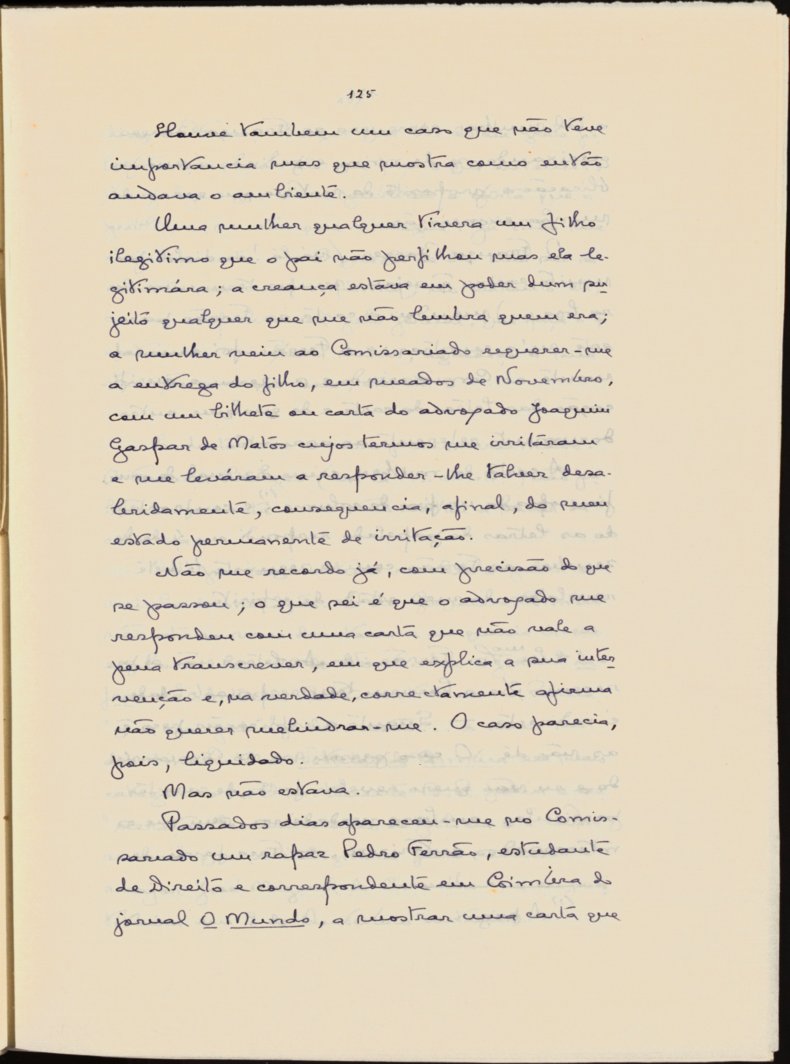 125
Houve tambem um caso que não teve
importancia mas que mostra como então
andava o ambiente.
Uma mulher qualquer tivera um filho
ilegitimo que o pai não perfilhou mas ela le-
gitimára; a creança estáva em poder dum su-
jeito qualquer que me não lembra quem era;
a mulher veiu ao Comissariado requerer-me
a entrega do filho, em meados de Novembro,
com um bilhete ou carta do advogado Joaquim
Gaspar de Matos cujos termos me irritáram
e me leváram a responder-lhe talvez desa-
bridamente, consequencia, afinal, do meu
estado permanente de irritação.
Não me recordo já, com precisão do que
se passou; o que sei é que o advogado me
respondeu com uma carta que não vale a
pena transcrever, em que explica a sua inter-
venção e, na verdade, correctamente afirma
não querer melindrar-me. O caso parecia,
pois, liquidado.
Mas não estava.
Passados dias apareceu-me no Comis-
sariado um rapaz Pedro Ferrão, estudante
de Direito e correspondente em Coimbra do
jornal O Mundo, a mostrar uma carta que